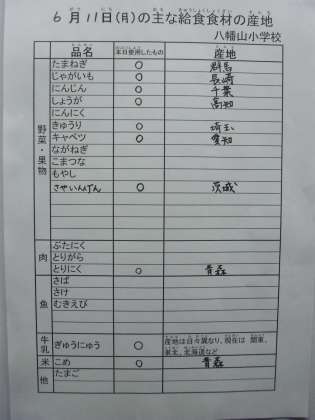 6月11日(月)の主な給食食材の産地
八幡山小学校
品名 本日使用したもの 産地
野菜・果物
たまねぎ ○ 群馬
じゃがいも ○ 長崎
にんじん ○ 千葉
しょうが ○ 高知
にんにく
きゅうり ○ 埼玉
キャベツ ○ 愛知
ながねぎ
こまつな
もやし
さやいんげん ○ 茨城
肉
ぶたにく
とりがら
とりにく ○ 青森
魚
さば
さけ
むきえび
牛乳 ぎゅうにゅう ○ 産地は日々異なり、現在は 関東、
東北、北海道など
米 こめ ○ 青森
他 たまご